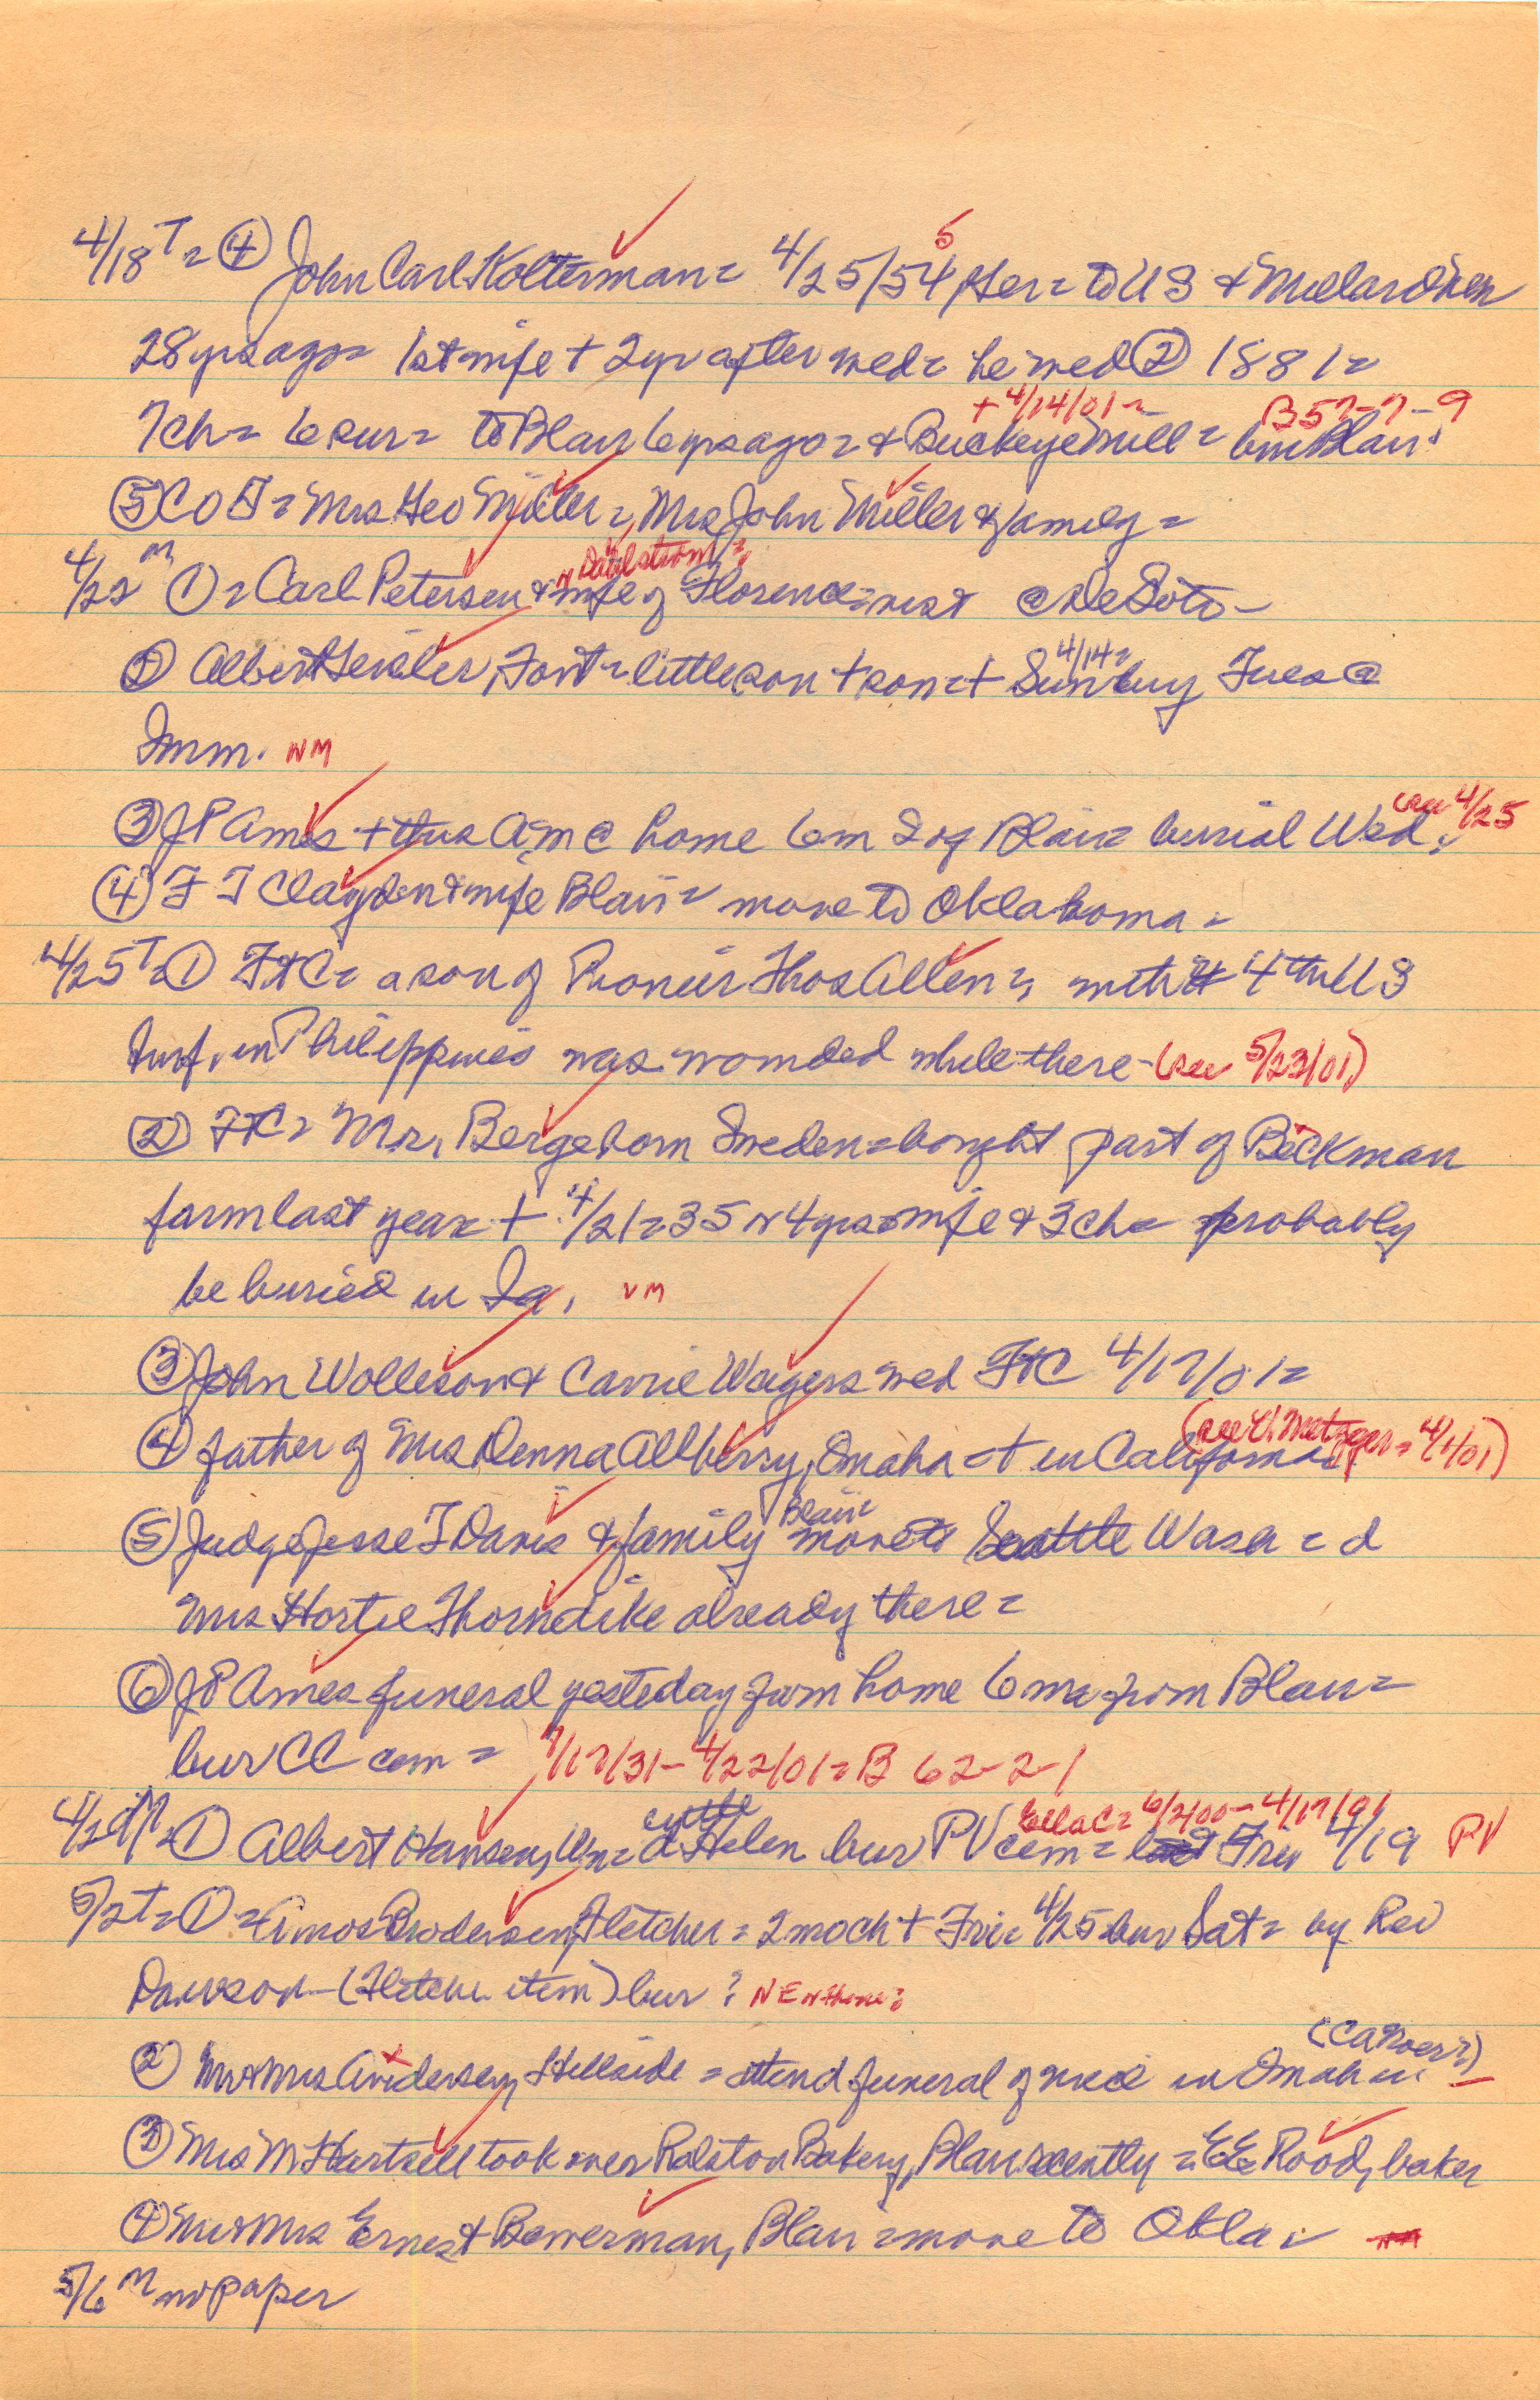 4/18 T = ④ John Carl Kolterman = 4/25/54 5 Ger = to US & Millard Neb
28 yrs ago = 1st wife + 2 yr after wed = he wed ② 1881 =
+ 4/14/01 = B 57-7-9
7 ch = 6 sur = to Blair 6 yrs ago = & Buckeye Mill = bur Blair
⑤ C of T = Mrs Geo Miller =, Mrs John Miller & family =
n Dahlstrom =
4/22 M ① = Carl Petersen & wife of Florence = visit @ DeSoto -
4/14 =
② Albert , Font = little son + son = + Sun bury Tues @
Imm. NM
③ J P Ames + this AM @ home 6 m S of Blair = burial Wed. (see 4/25
④ F J Claydon & wife Blair = move to Oklahoma =
4/25 T = ① Ft C = a son of Pioneer Thos Allen =, with 4th US
Inf. in Philippines was wounded while there - (see 5/23/01)
② Ft C = Mr. Berge born Sweden = bought part of Beckman
farm last year = + 4/21 = 35 or 4 yrs = wife & 3 ch = probably
be buried in Ia. NM
③ John Wolleson & Carrie Wagers wed Ft C 4/17/01 =
④ father of Mrs Denna Allberry, Omaha = + in California (see C. Metzger = 4/1/01)
Blair =
⑤ Judge Jesse T Davis & family move to Seattle Wash = d
Mrs Hortie Thorndike already there =
⑥ J P Ames funeral yesteday from home 6 m = from Blair =
bur CC cem = 7/17/31 - 4/22/01 = B 62-2-1
little Ella C = 6/2/00 - 4/17/01
4/29 M = ① Albert Hansen, Wn = d Helen bur PV cem = last Fri 4/19 PV
5/2 T = ① = Amos Brodersen, Fletcher = 2 mo ch + Fri = 4/25 bur Sat = by Rev
Dawson - (Fletcher item) bur ? N E n there ?
② Mr & Mrs Andersen, Hillside = attend funeral of niece in Omaha =
③ Mrs M Hartzell took over Ralston Bakery, Blair recently = E E Rood, baker
④ Mr & Mrs Ernest Bowerman, Blair = move to Okla =
5/6 M no paper